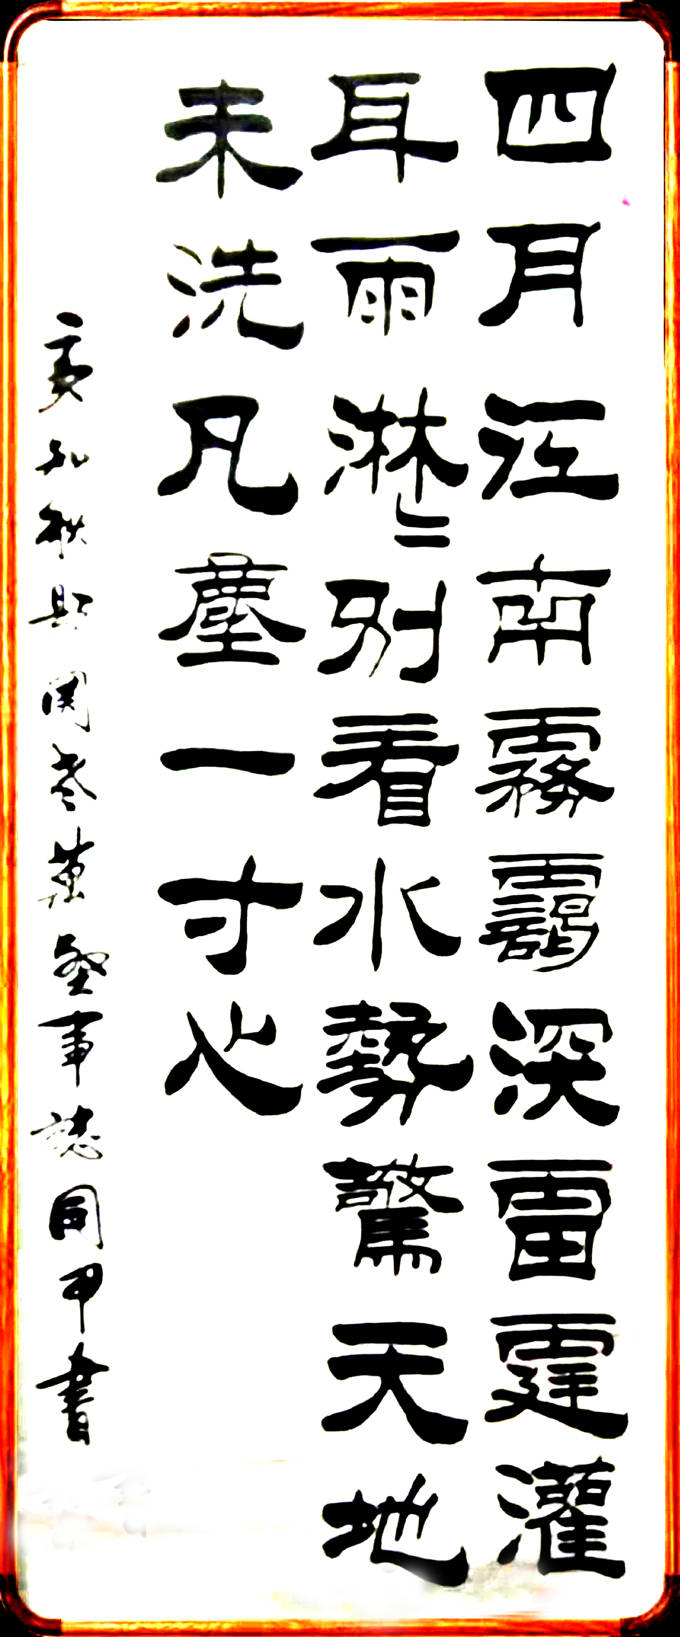 四月江南霧靄深雷霆灌
耳雨淋二別看水勢驚天地
未洗凡塵一寸心
亥初秋 関 萬 事誌同甲書